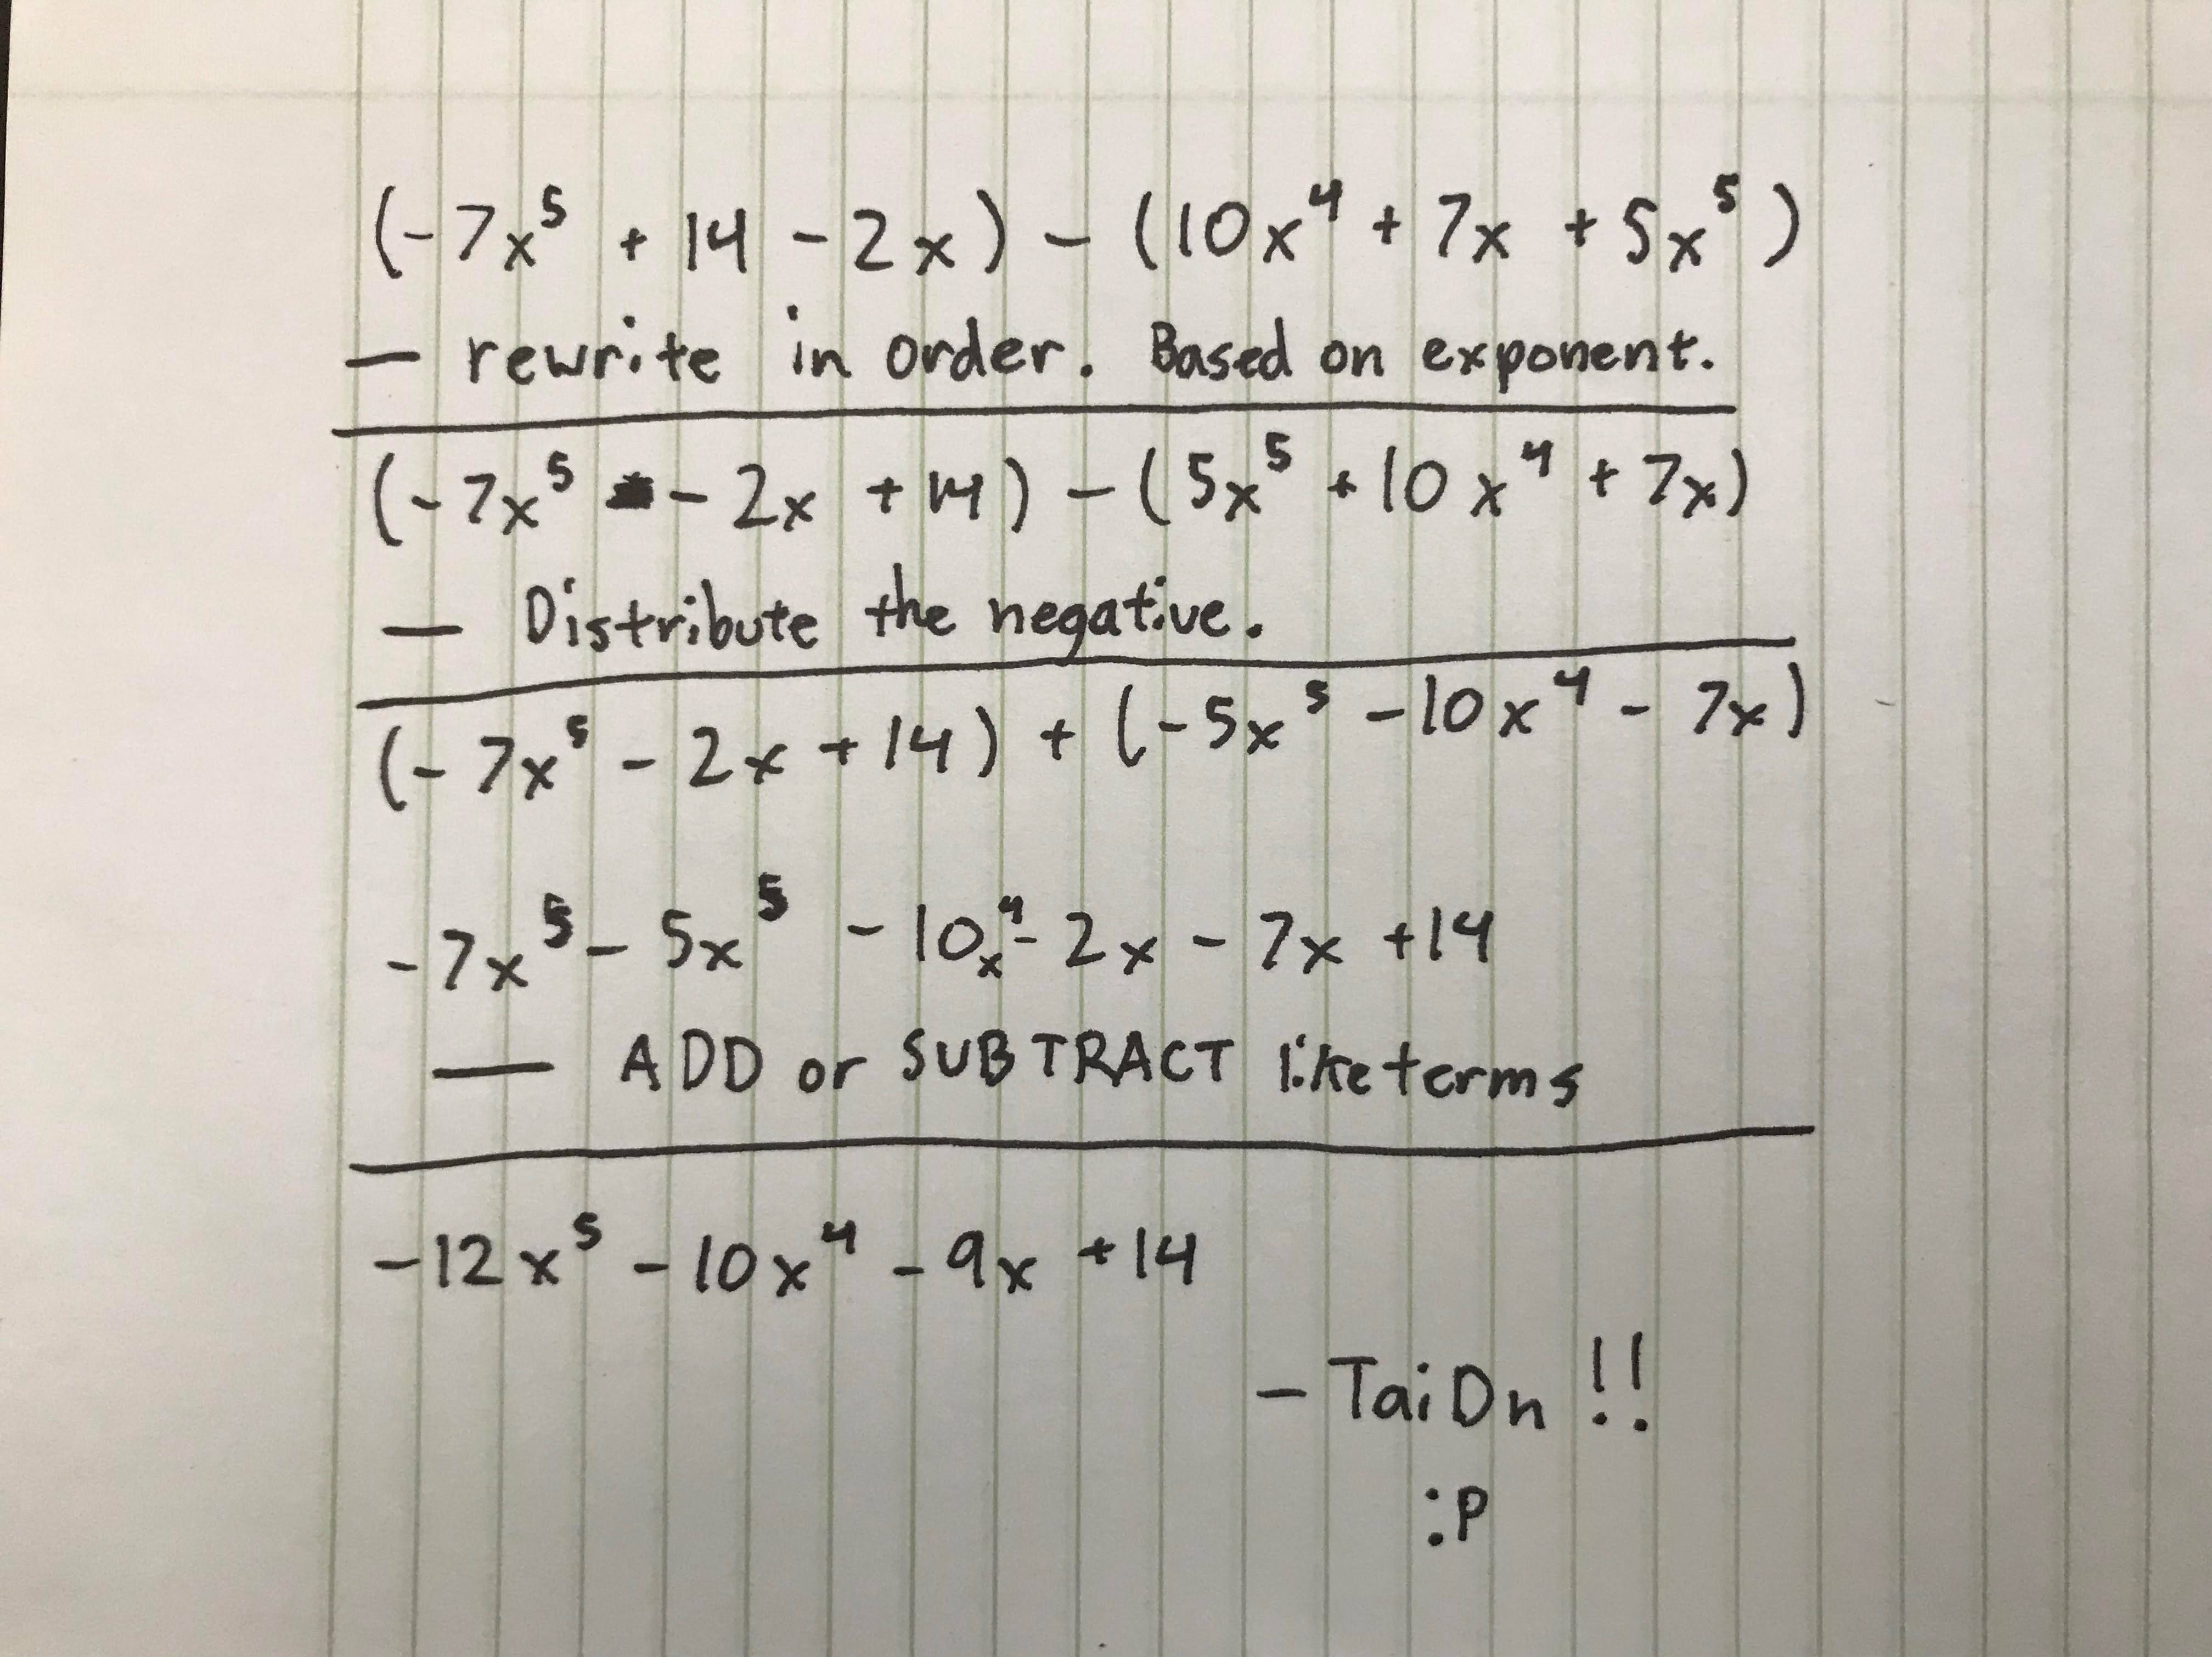 (-7x⁵ + 14 - 2x) - (10x⁴ + 7x + 5x⁵)
— rewrite in order. Based on exponent.
(-7x⁵ - 2x + 14) - (5x⁵ + 10x⁴ + 7x)
— Distribute the negative.
(-7x⁵ - 2x + 14) + (-5x⁵ - 10x⁴ - 7x)
-7x⁵ - 5x⁵ - 10x⁴ - 2x - 7x + 14
— ADD or SUBTRACT like terms
-12x⁵ - 10x⁴ - 9x + 14
- TaiDn !!
:P